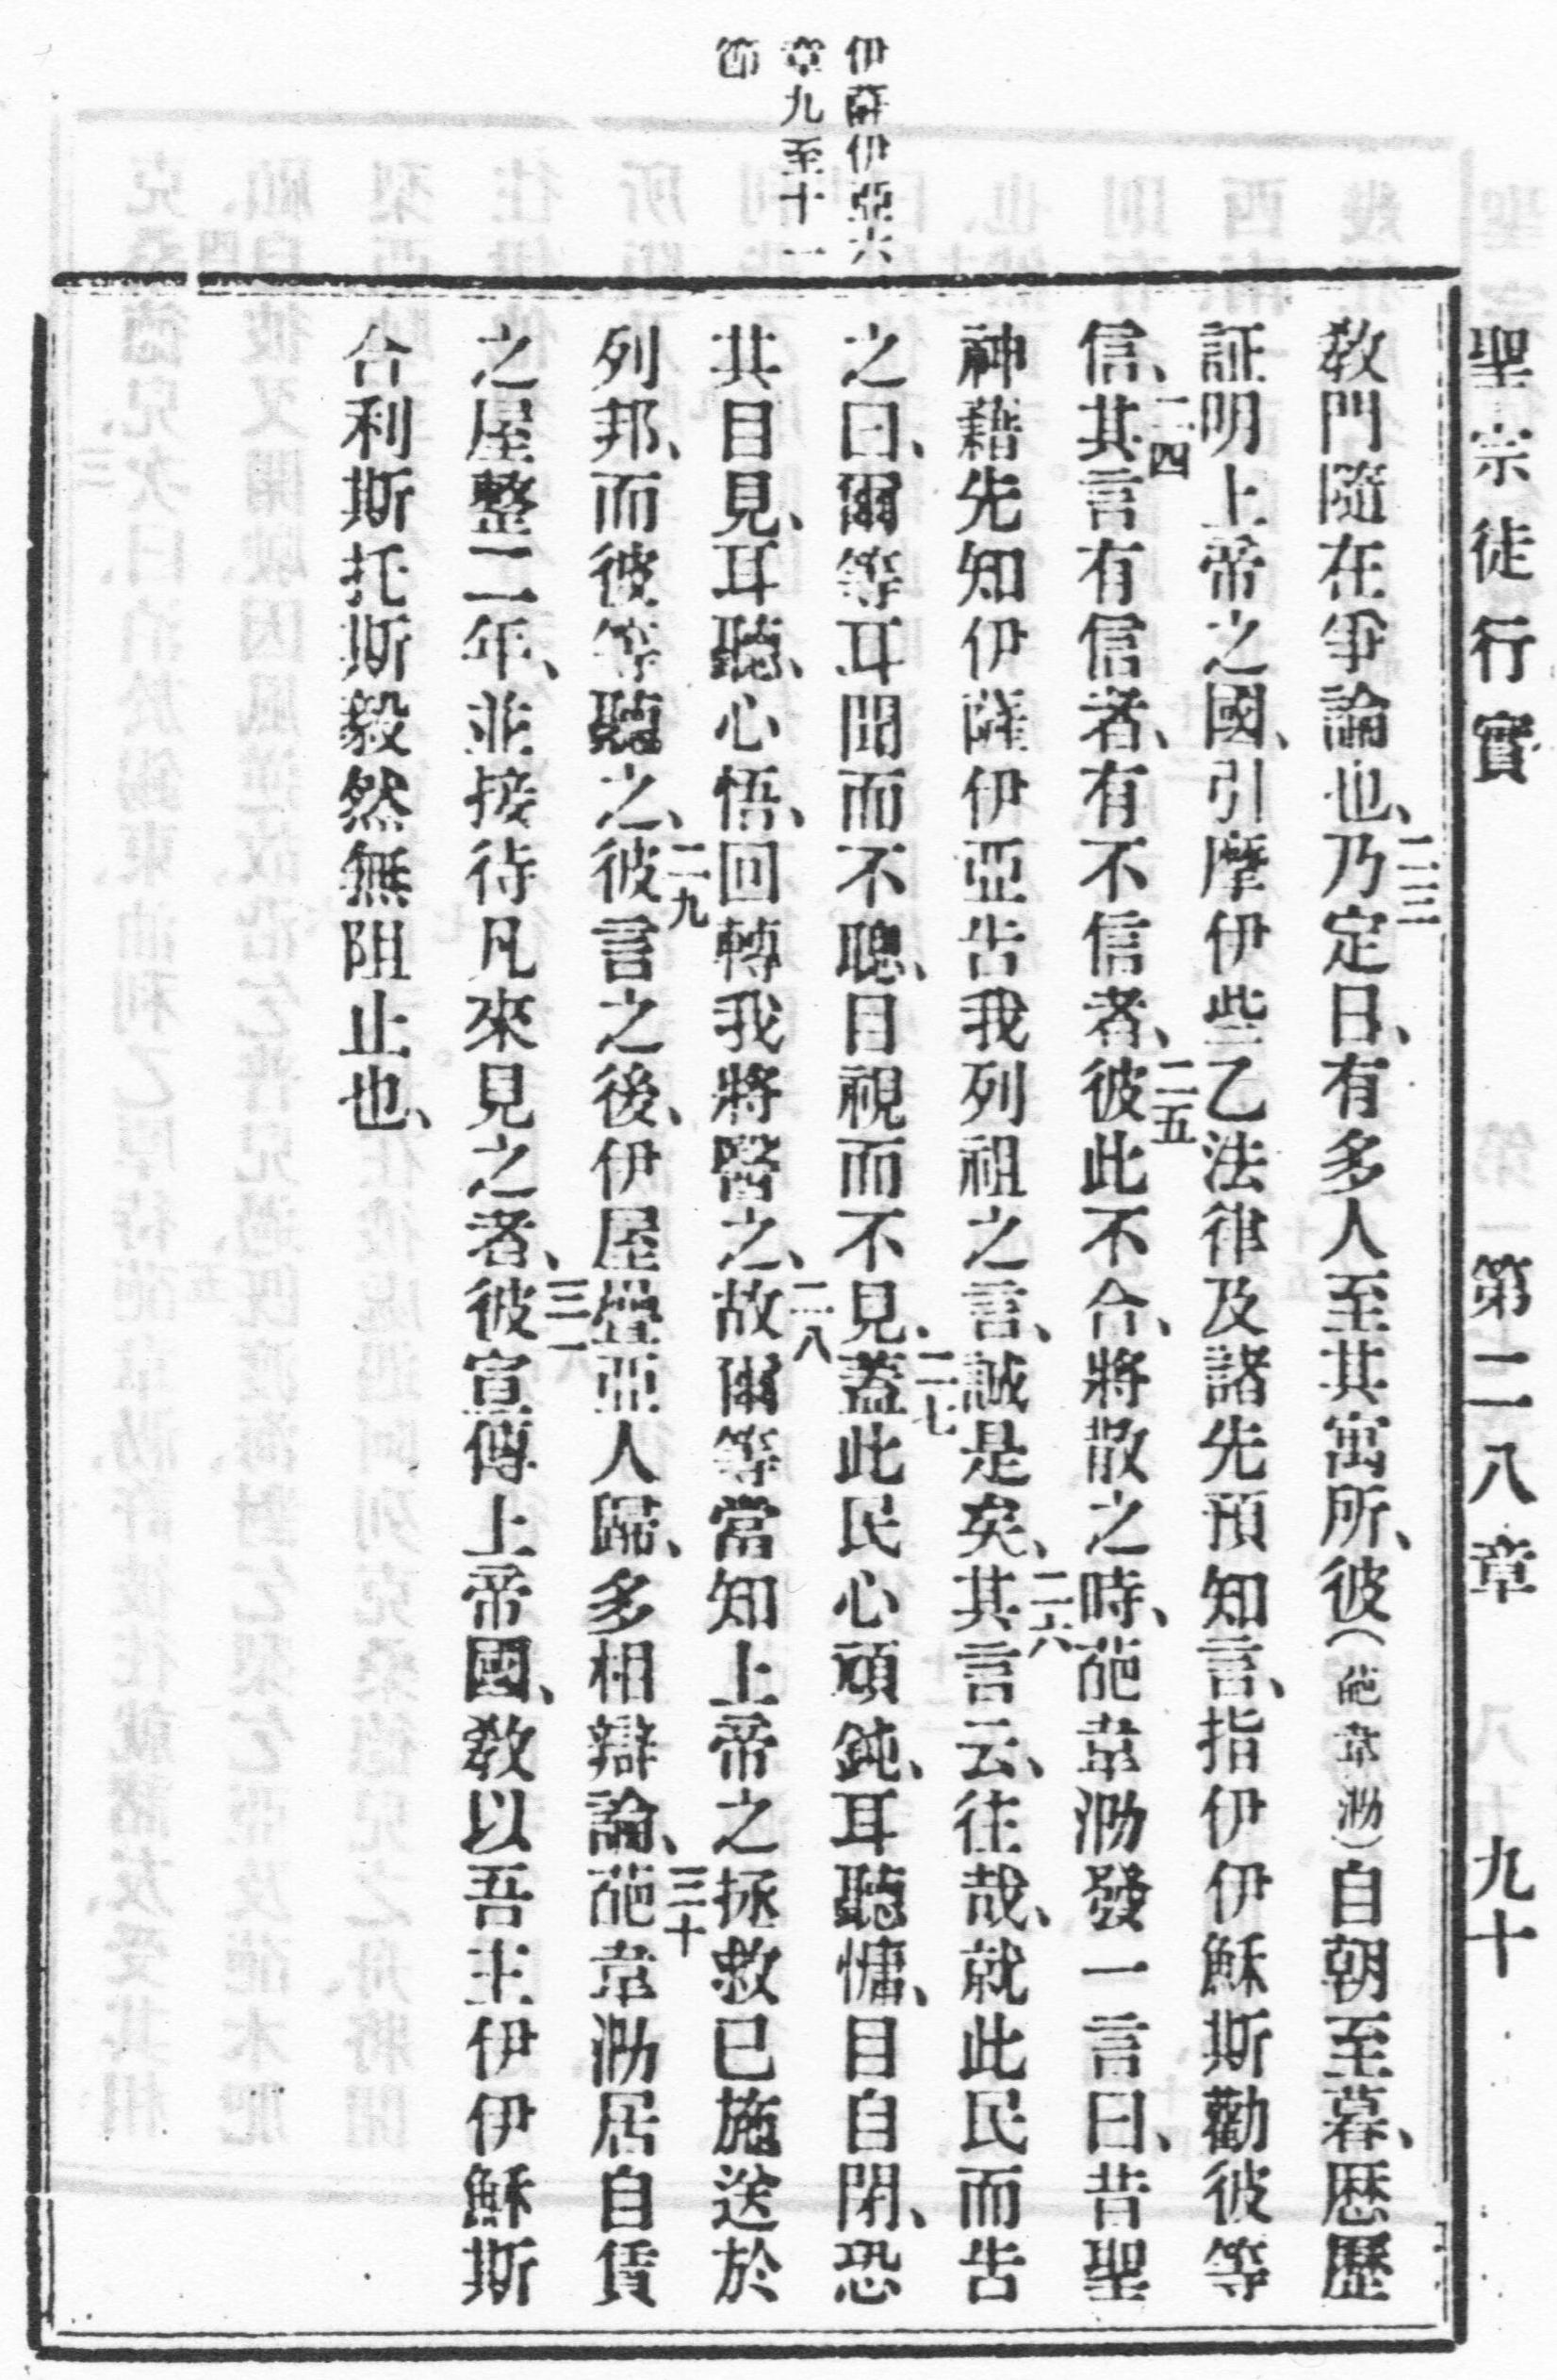 聖宗徒行實　第二八章　九十
伊薩伊亞六
章九至十一
節
教門隨在爭論也、二三乃定日、有多人至其寓所、彼（葩韋泐）自朝至暮、歷歷
証明上帝之國、引摩伊些乙法律及諸先預知言、指伊伊穌斯勸彼等
信、二四其言有信者、有不信者、二五彼此不合、將散之時、葩韋泐發一言曰、昔聖
神藉先知伊薩伊亞告我列祖之言、誠是矣、二六其言云、往哉、就此民而告
之曰、爾等耳聞而不聰、目視而不見、二七蓋此民心頑鈍、耳聽慵、目自閉、恐
其目見、耳聽、心悟、回轉我將醫之、二八故爾等當知上帝之拯救已施送於
列邦、而彼等聽之、二九彼言之後、伊屋疊亞人歸、多相辯論、三十葩韋泐居自賃
之屋整二年、並接待凡來見之者、三一彼宣傳上帝國、教以吾主伊伊穌斯
合利斯托斯毅然無阻止也、